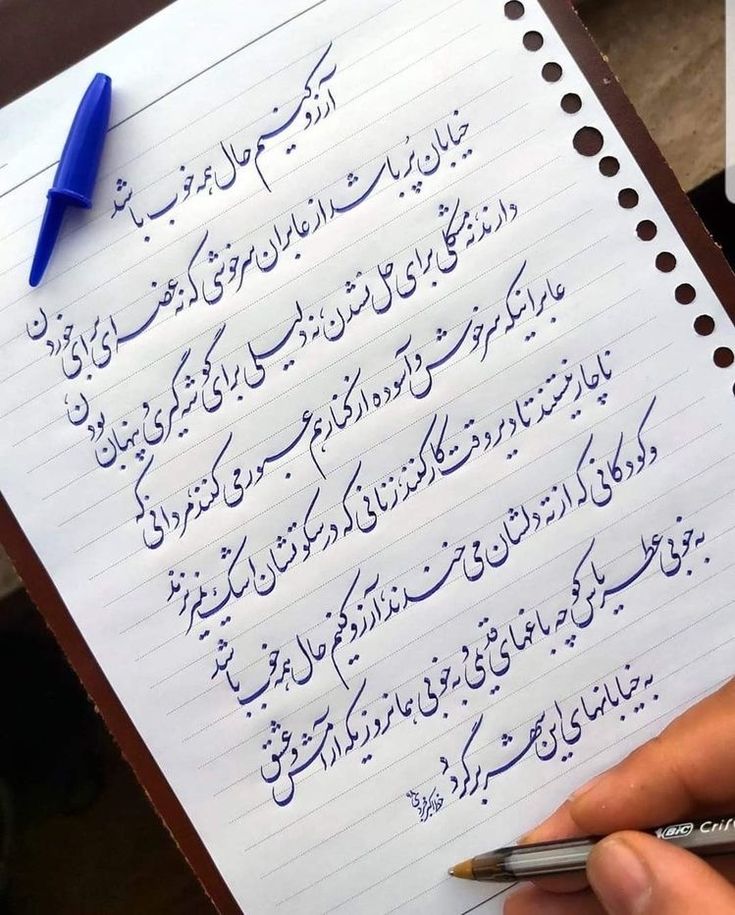 آرزو کنیم حال همه خوب باشد
خیابان پُر باشد از عابران سرخوشی که نه غصه‌ای برای خوردن
دارند، نه مشکلی برای حل نشدن، نه دلیلی برای گوشه گیری و پنهان بودن
عابرانیکه سرخوش و آسوده از کنار هم عبور می کنند، مردانی که
ناچار نیستند تا دیروقت کار کنند، زنانی که در سکوتشان اشک نمیریزند
و کودکانی که از ته دلشان می خندند، آرزو کنیم حال همه خوب باشد
به خوبی عطر یاس کوچه باغهای قدیمی و به خوبی همانروزیکه آرامش و عشق
به خیابانهای این شهر برگردد
BIC Crist